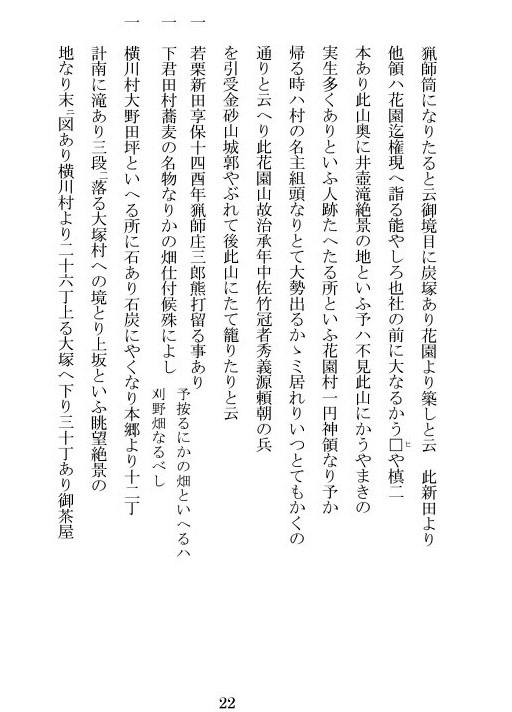 猟師筒になりたると云御境目に炭塚あり花園より築しと云　此新田より
他領ハ花園迄権現へ詣る能やしろ也社の前に大なるかう□ヒや槙二
本あり此山奥に井壺滝絶景の地といふ予ハ不見此山にかうやまきの
実生多くありといふ人跡たへたる所といふ花園村一円神領なり予か
帰る時ハ村の名主組頭なりとて大勢出るかゝミ居れりいつとてもかくの
通りと云へり此花園山故治承年中佐竹冠者秀義源頼朝の兵
を引受金砂山城郭やぶれて後此山にたて籠りたりと云
一　若栗新田享保十四酉年猟師庄三郎熊打留る事あり
一　下君田村蕎麦の名物なりかの畑仕付候殊によし
予按るにかの畑といへるハ
刈野畑なるべし
一　横川村大野田坪といへる所に石あり石炭にやくなり本郷より十二丁
計南に滝あり三段ニ落る大塚村への境とり上坂といふ眺望絶景の
地なり末ニ図あり横川村より二十六丁上る大塚へ下り三十丁あり御茶屋
22